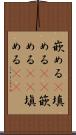 嵌める 填
める 嵌
める 填
める